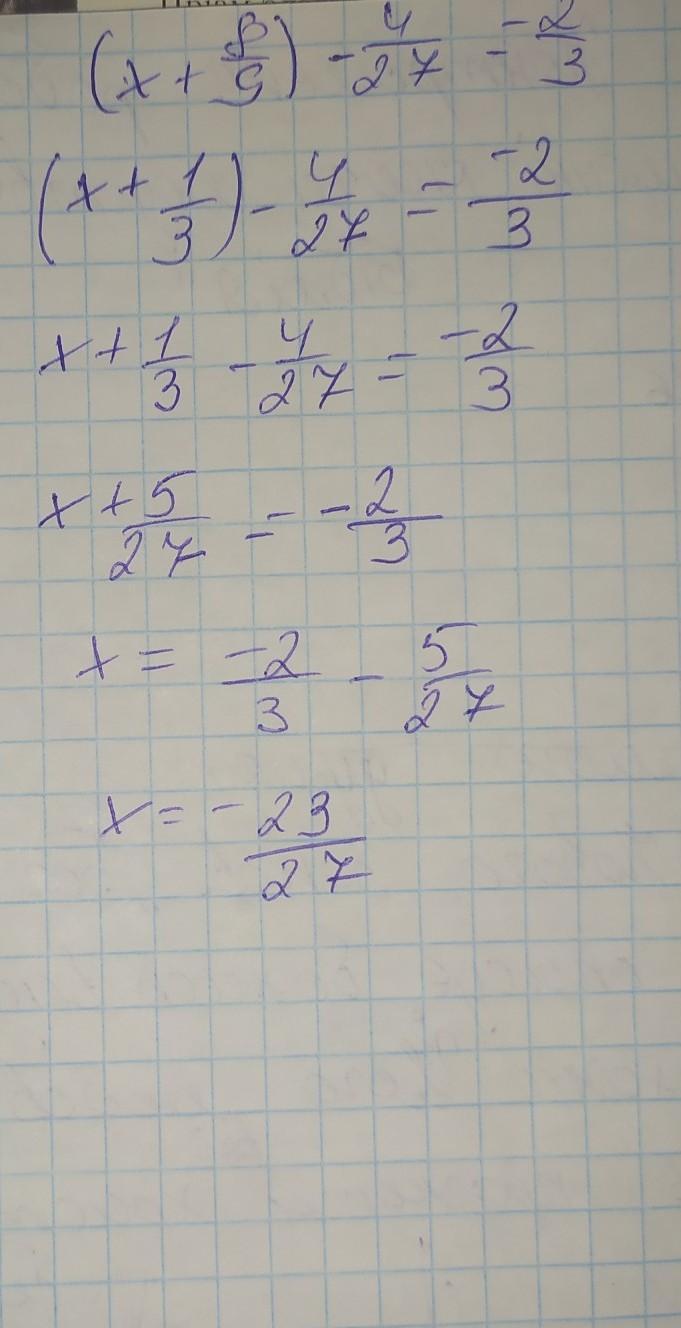 (x + 8/9) - 4/27 = -2/3
(x + 1/3) - 4/27 = -2/3
x + 1/3 - 4/27 = -2/3
x + 5/27 = -2/3
x = -2/3 - 5/27
x = - 23/27